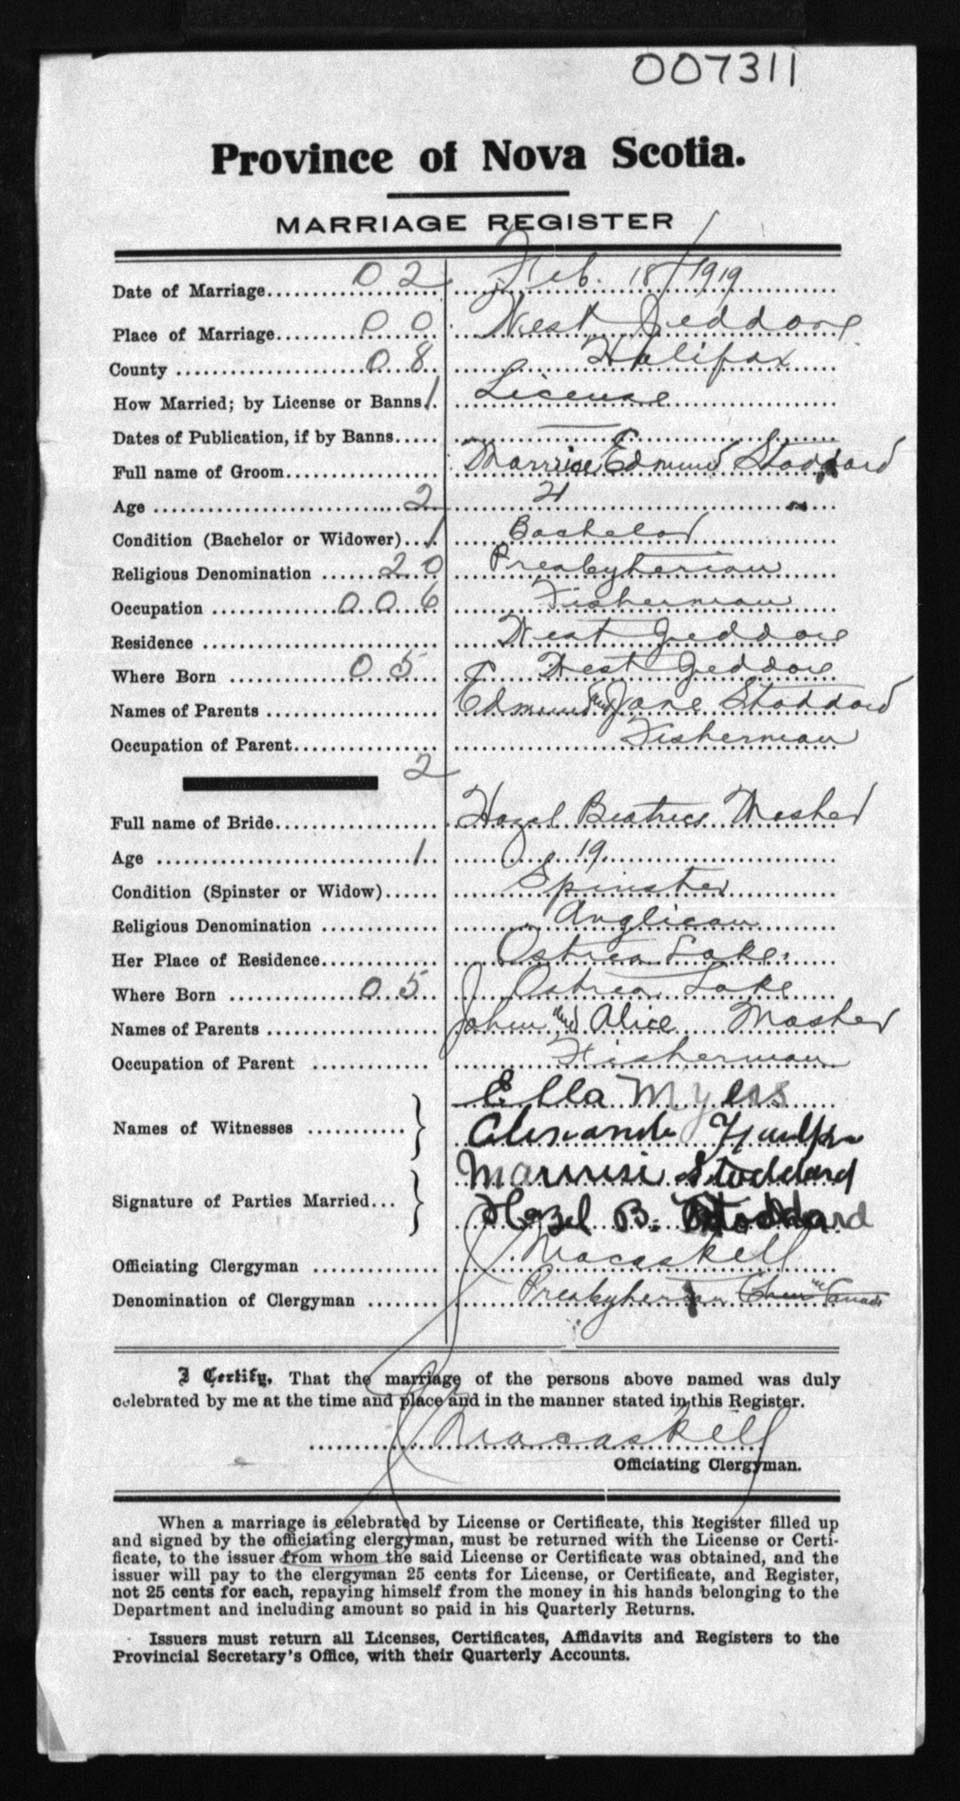 007311
Province of Nova Scotia.
MARRIAGE REGISTER
Date of Marriage 02 Feb. 18/1919
Place of Marriage 00 West Jeddore
County 08 Halifax
How Married; by License or Banns 1 License
Dates of Publication, if by Banns —
Full name of Groom Edmund Stoddard
Age 2 21
Condition (Bachelor or Widower) 1 Bachelor
Religious Denomination 20 Presbyterian
Occupation 006 Fisherman
Residence West Jeddore
Where Born 05 West Jeddore
Names of Parents Edmund and Jane Stoddard
Occupation of Parent Fisherman
2
Full name of Bride Hazel Beatrice Mosher
Age 1 19
Condition (Spinster or Widow) Spinster
Religious Denomination Anglican
Her Place of Residence Ostrea Lake.
Where Born 05 Ostrea Lake
Names of Parents John and Alice Mosher
Occupation of Parent Fisherman
Names of Witnesses Ella Myers
Signature of Parties Married Stoddard
Hazel B. Stoddard
Officiating Clergyman J Macaskell
Denomination of Clergyman Presbyterian Canada
I Certify, That the marriage of the persons above named was duly
celebrated by me at the time and place and in the manner stated in this Register.
J Macaskell
Officiating Clergyman.
When a marriage is celebrated by License or Certificate, this Register filled up
and signed by the officiating clergyman, must be returned with the License or Certi-
ficate, to the issuer from whom the said License or Certificate was obtained, and the
issuer will pay to the clergyman 25 cents for License, or Certificate, and Register,
not 25 cents for each, repaying himself from the money in his hands belonging to the
Department and including amount so paid in his Quarterly Returns.
Issuers must return all Licenses, Certificates, Affidavits and Registers to the
Provincial Secretary's Office, with their Quarterly Accounts.